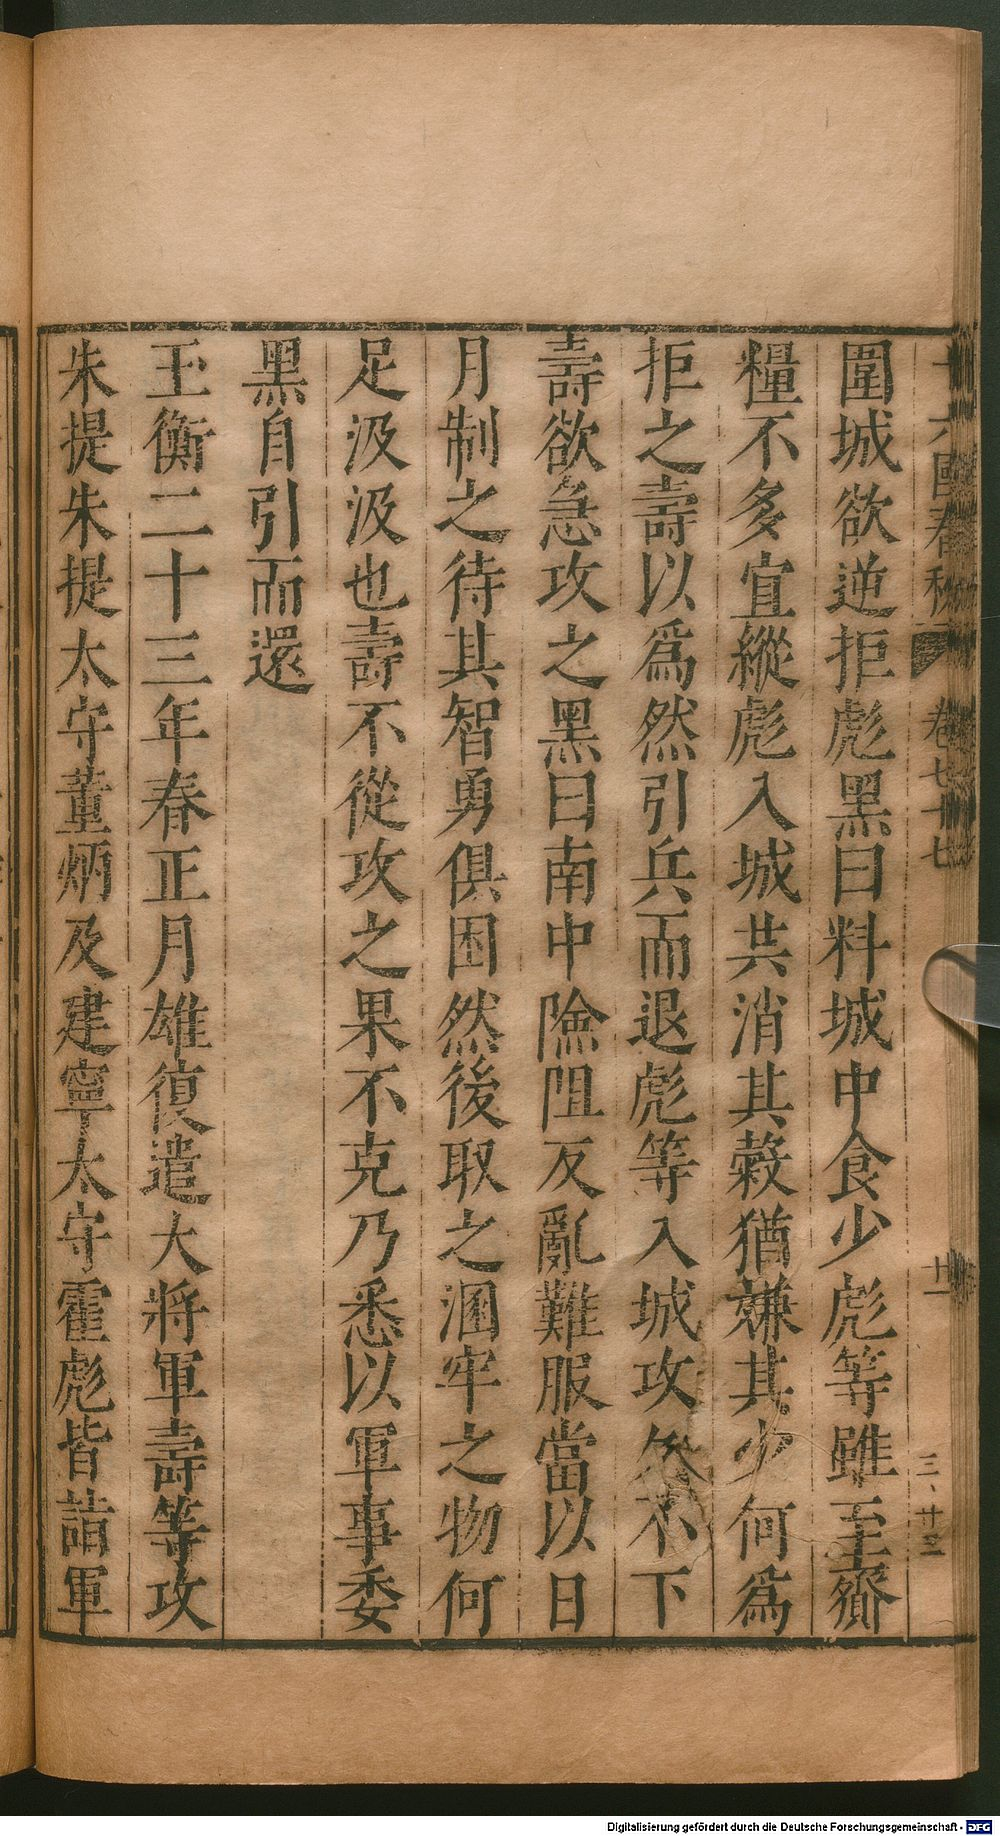 十六國春秋 卷七十七 廿一 三、廿三
圍城欲逆拒彪黑曰料城中食少彪等雖至齎
糧不多宜縱彪入城共消其穀猶嫌其少何爲
拒之壽以爲然引兵而退彪等入城攻久不下
壽欲急攻之黑曰南中險阻反亂難服當以日
月制之待其智勇俱困然後取之溷牢之物何
足汲汲也壽不從攻之果不克乃悉以軍事委
黑自引而還
玉衡二十三年春正月雄復遣大將軍壽等攻
朱提朱提太守董炳及建寧太守霍彪皆詣軍
Digitalisierung gefördert durch die Deutsche Forschungsgemeinschaft - DFG